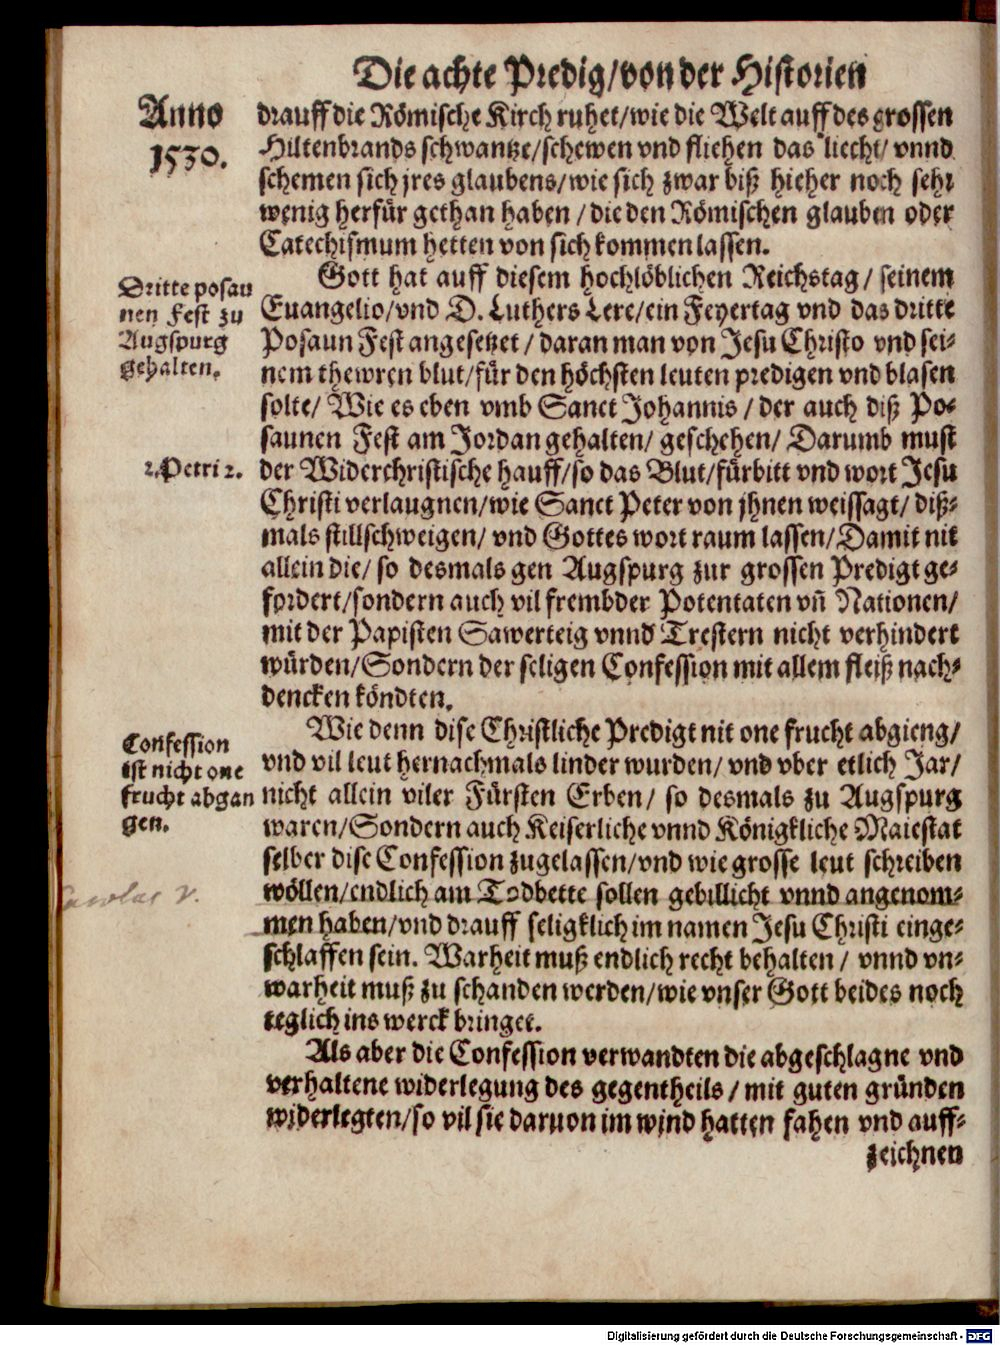 Die achte Predig/von der Historien
Anno
1530.
drauff die Römische Kirch ruhet/wie die Welt auff des grossen
Hiltenbrands schwantze/schewen vnd fliehen das liecht/ vnnd
schemen sich jres glaubens/wie sich zwar biß hieher noch sehr
wenig herfür gethan haben/die den Römischen glauben oder
Catechismum hetten von sich kommen lassen.
Dritte posau
nen Fest zu
Augspurg
gehalten.
Gott hat auff diesem hochlöblichen Reichstag/ seinem
Euangelio/vnd D. Luthers Lere/ein Feyertag vnd das dritte
Posaun Fest angesetzet/ daran man von Jesu Christo vnd sei-
nem thewren blut/für den höchsten leuten predigen vnd blasen
solte/ Wie es eben vmb Sanct Johannis/ der auch diß Po-
saunen Fest am Jordan gehalten/ geschehen/ Darumb must
2.Petri 2.
der Widerchristische hauff/so das Blut/fürbitt vnd wort Jesu
Christi verlaugnen/wie Sanct Peter von jhnen weissagt/ diß-
mals stillschweigen/ vnd Gottes wort raum lassen/Damit nit
allein die/ so desmals gen Augspurg zur grossen Predigt ge-
fordert/sondern auch vil frembder Potentaten vñ Nationen/
mit der Papisten Sawerteig vnnd Trestern nicht verhindert
würden/Sondern der seligen Confession mit allem fleiß nach-
dencken köndten.
Confession
ist nicht one
frucht abgan
gen.
Wie denn dise Christliche Predigt nit one frucht abgieng/
vnd vil leut hernachmals linder wurden/ vnd vber etlich Jar/
nicht allein viler Fürsten Erben/ so desmals zu Augspurg
waren/Sondern auch Keiserliche vnnd Königkliche Maiestat
selber dise Confession zugelassen/vnd wie grosse leut schreiben
Carolus V.
wöllen/endlich am Todbette sollen gebillicht vnnd angenom-
men haben/vnd drauff seligklich im namen Jesu Christi einge-
schlaffen sein. Warheit muß endlich recht behalten/ vnnd vn-
warheit muß zu schanden werden/wie vnser Gott beides noch
teglich ins werck bringet.
Als aber die Confession verwandten die abgeschlagne vnd
verhaltene widerlegung des gegentheils/ mit guten gründen
widerlegten/so vil sie daruon im wind hatten fahen vnd auff-
zeichnen
Digitalisierung gefördert durch die Deutsche Forschungsgemeinschaft - DFG